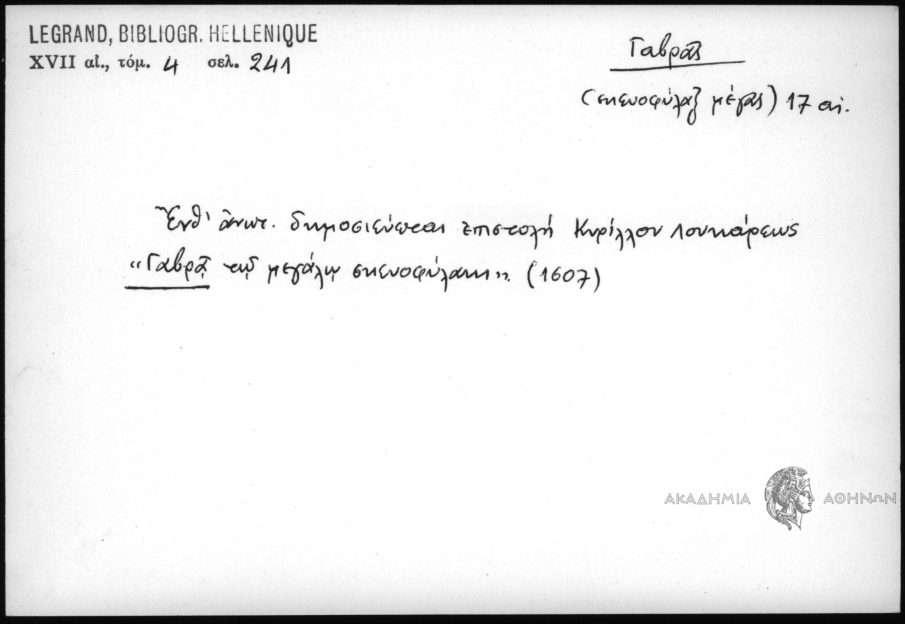 LEGRAND, BIBLIOGR. HELLENIQUE
XVII αἰ., τόμ. 4 σελ. 241
Γαβρᾶς
(σκευοφύλαξ μέγας) 17 αἰ.
Ἔνθ' ἀνωτ. δημοσιεύεται ἐπιστολή Κυρίλλου Λουκάρεως
"Γαβρᾷ τῷ μεγάλῳ σκευοφύλακι". (1607)
ΑΚΑΔΗΜΙΑ ΑΘΗΝΩΝ